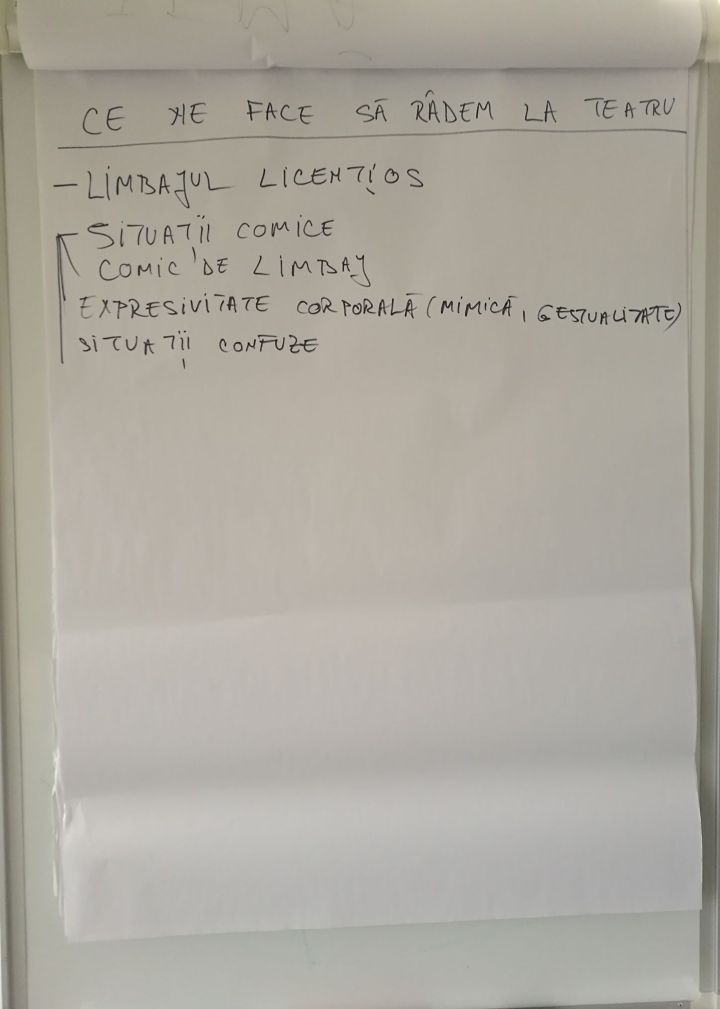 CE NE FACE SĂ RÂDEM LA TEATRU
- LIMBAJUL LICENȚIOS
- SITUAȚII COMICE
COMIC DE LIMBAJ
EXPRESIVITATE CORPORALĂ (MIMICĂ, GESTUALITATE)
SITUAȚII CONFUZE